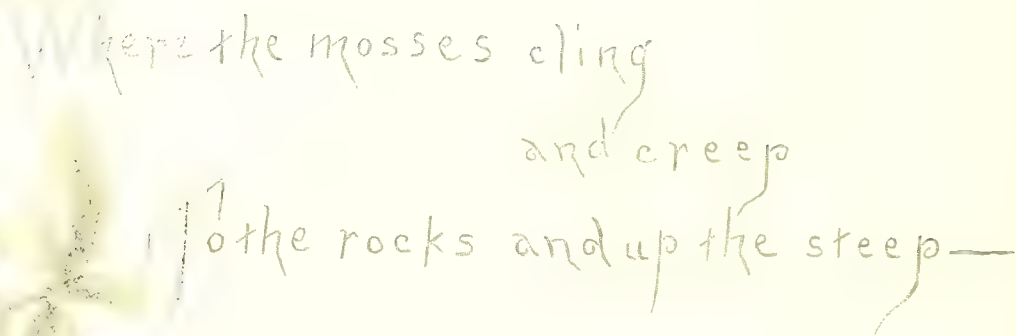 Where the mosses cling
and creep
To the rocks and up the steep—